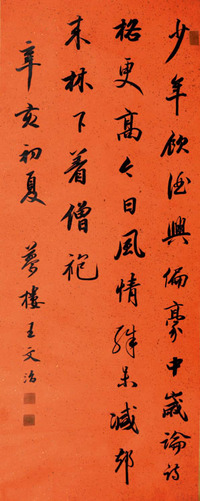 少年飲酒興偏豪中歲論詩
格更高今日風情殊未減却
来林下着僧袍
辛亥初夏 夢樓王文治